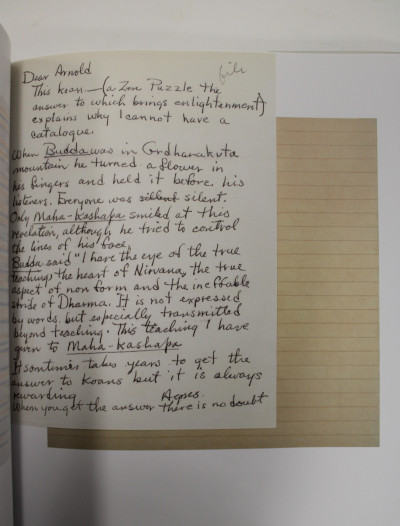 file
Dear Arnold
This koan - (a Zen Puzzle the
answer to which brings enlightenment)
explains why I cannot have a
catalogue.
When Budda was in Grdhanakuta
mountain he turned a flower in
his fingers and held it before his
listeners. Everyone was sillent silent.
Only Maha-Kashapa smiled at this
revelation, although he tried to control
the lines of his face.
Budda said "I have the eye of the true
teaching, the heart of Nirvana, the true
aspect of non form and the ineffable
stride of Dharma. It is not expressed
by words, but especially transmitted
beyond teaching. This teaching I have
given to Maha-Kashapa
It somtimes takes years to get the
answer to koans but it is always
rewarding Agnes
When you get the answer there is no doubt